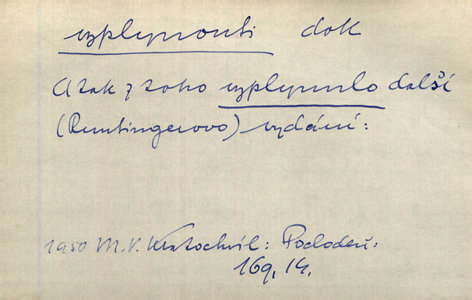 vyplynouti dok
A tak z toho vyplynulo další
(Runtingerovo) vydání:
1950 M.V. Kratochvíl:
169, 14.